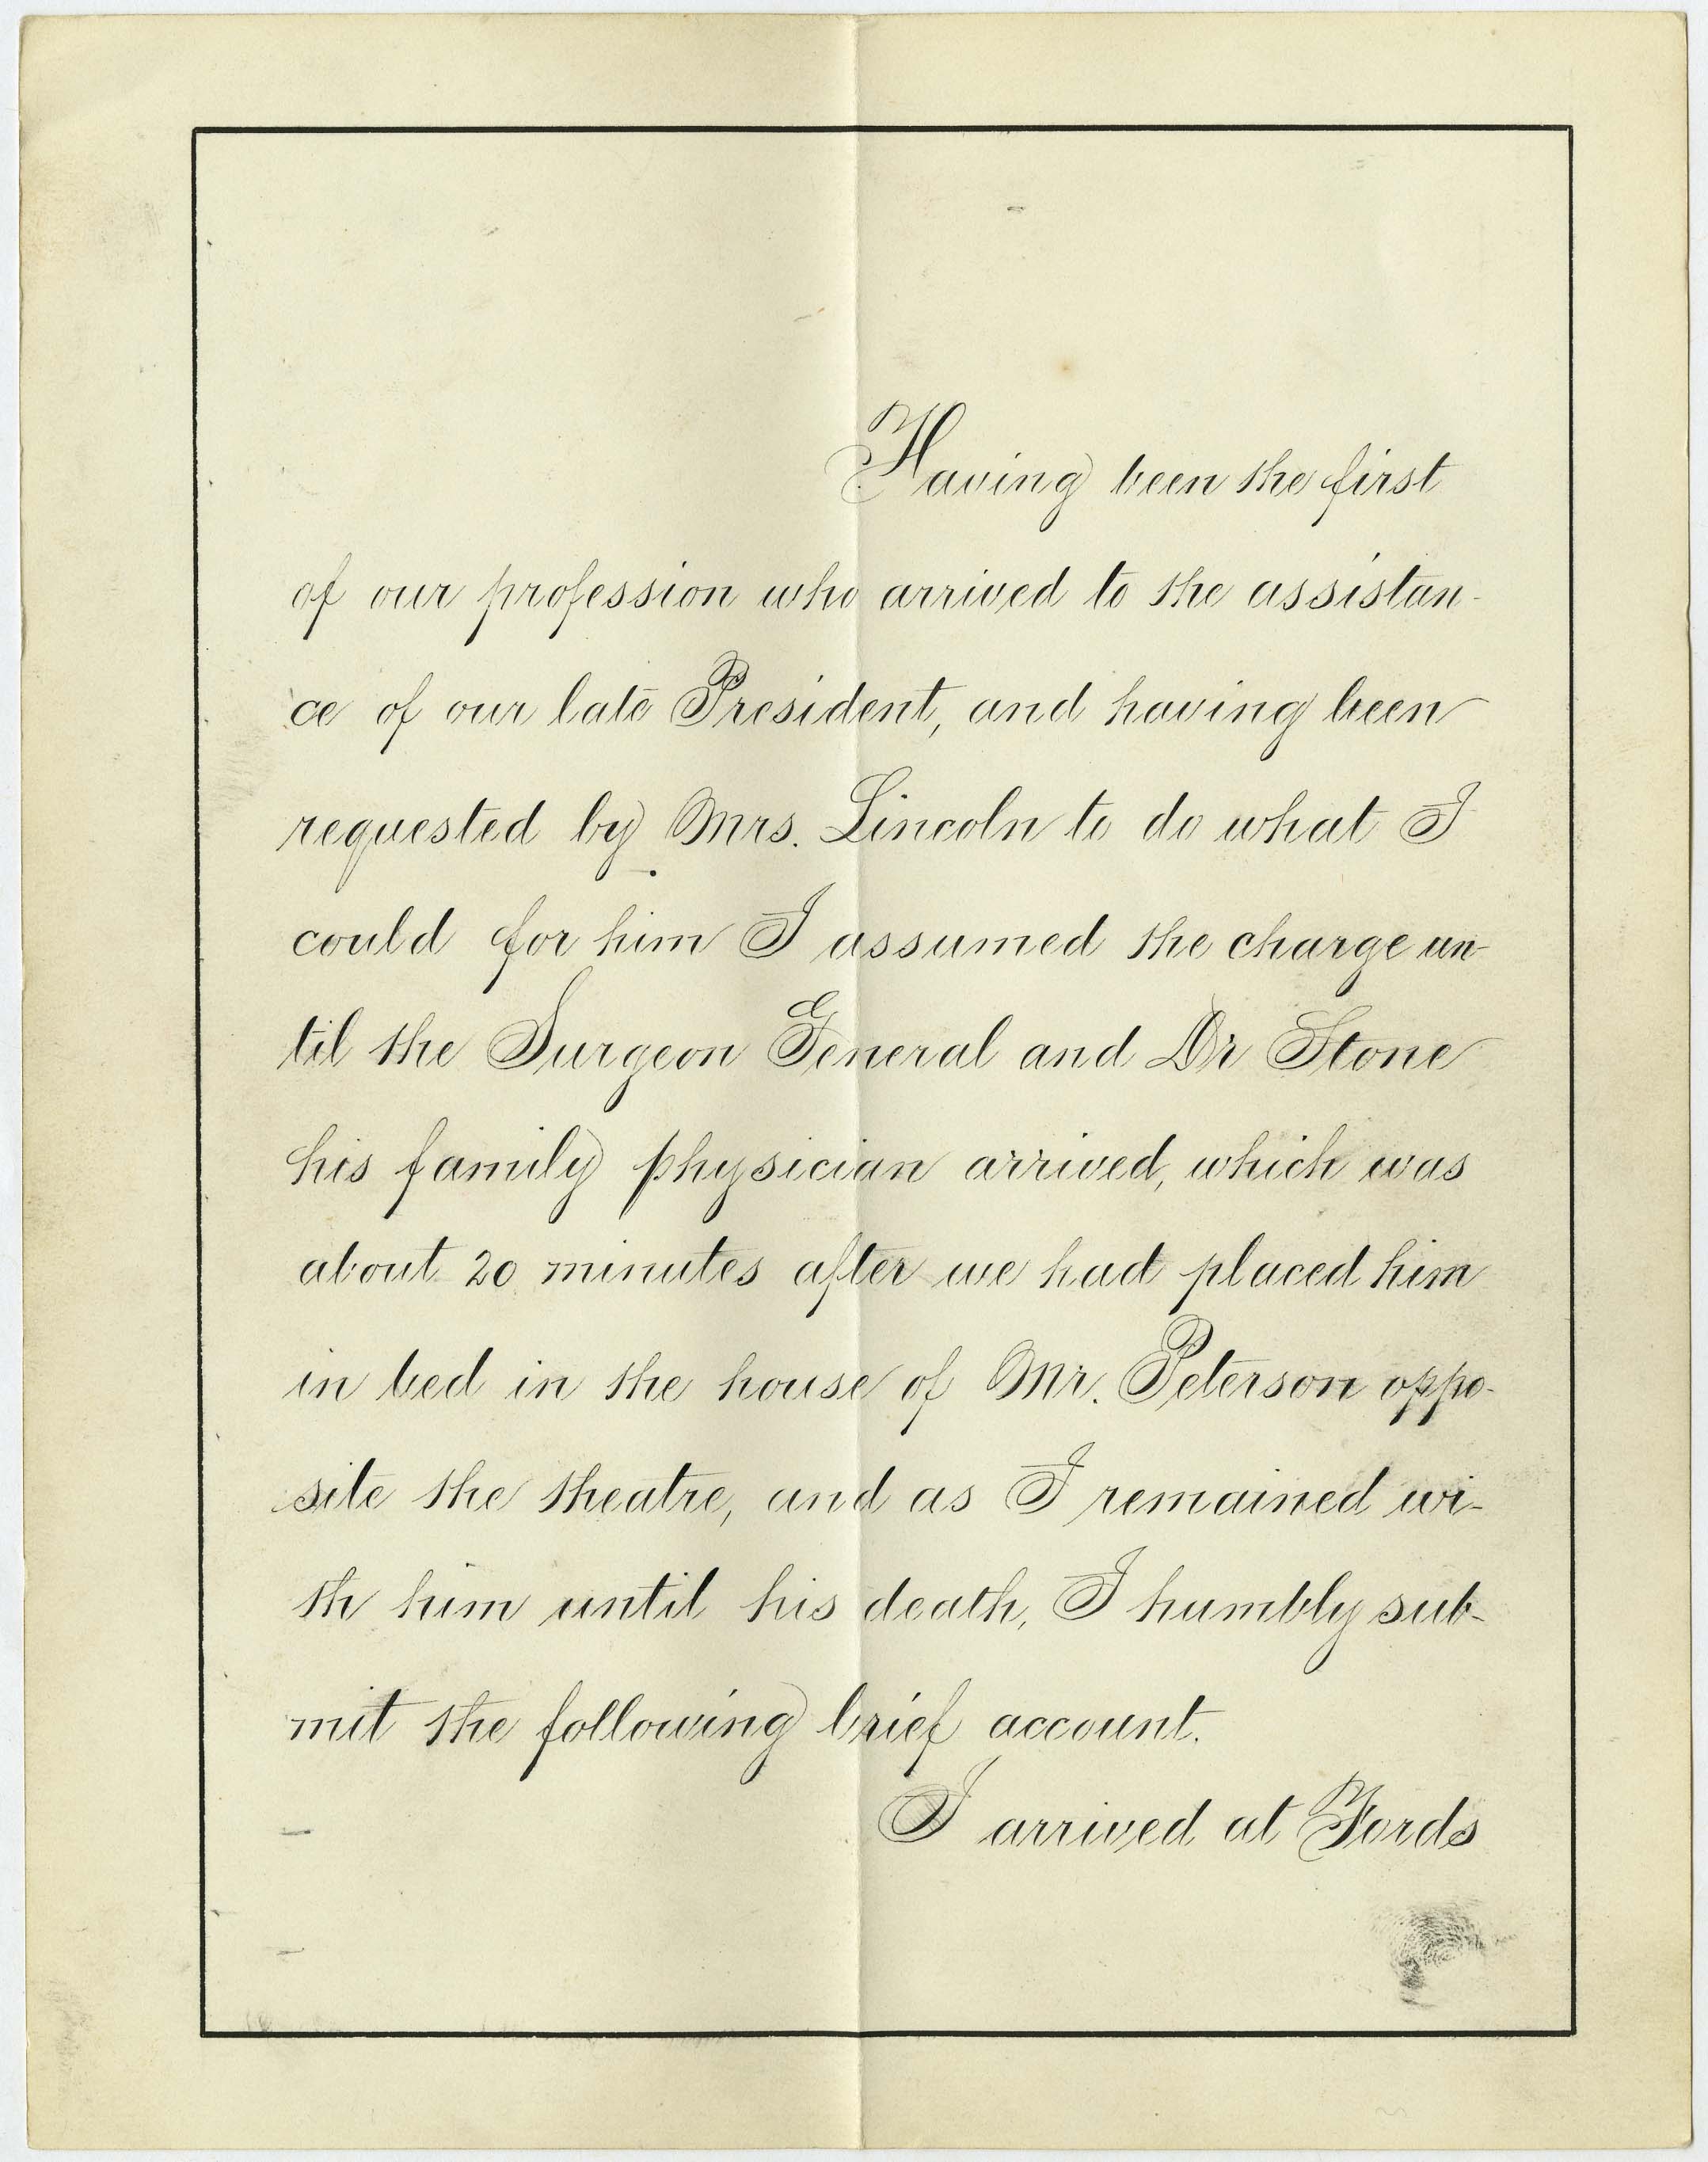 Having been the first
of our profession who arrived to the assistan-
ce of our late President, and having been
requested by Mrs. Lincoln to do what I
could for him I assumed the charge un-
til the Surgeon General and Dr Stone
his family physician arrived, which was
about 20 minutes after we had placed him
in bed in the house of Mr. Peterson oppo-
site the theatre, and as I remained wi-
th him until his death, I humbly sub-
mit the following brief account.
I arrived at Fords